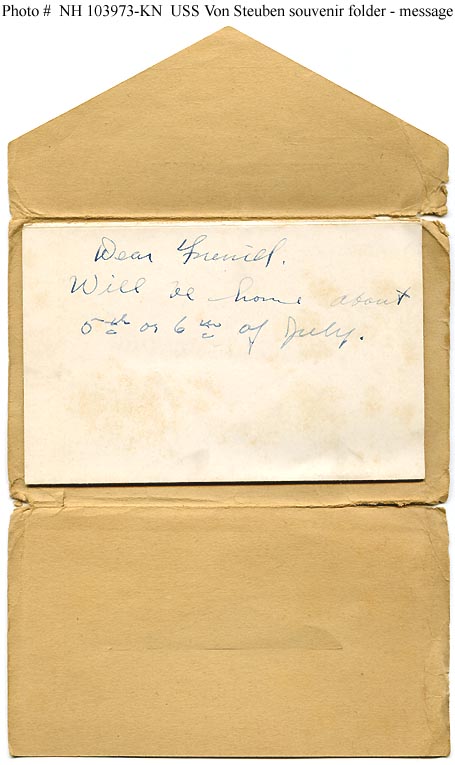 Photo # NH 103973-KN USS Von Steuben souvenir folder - message
Dear Friend.
Will be home about
5th or 6th of July.